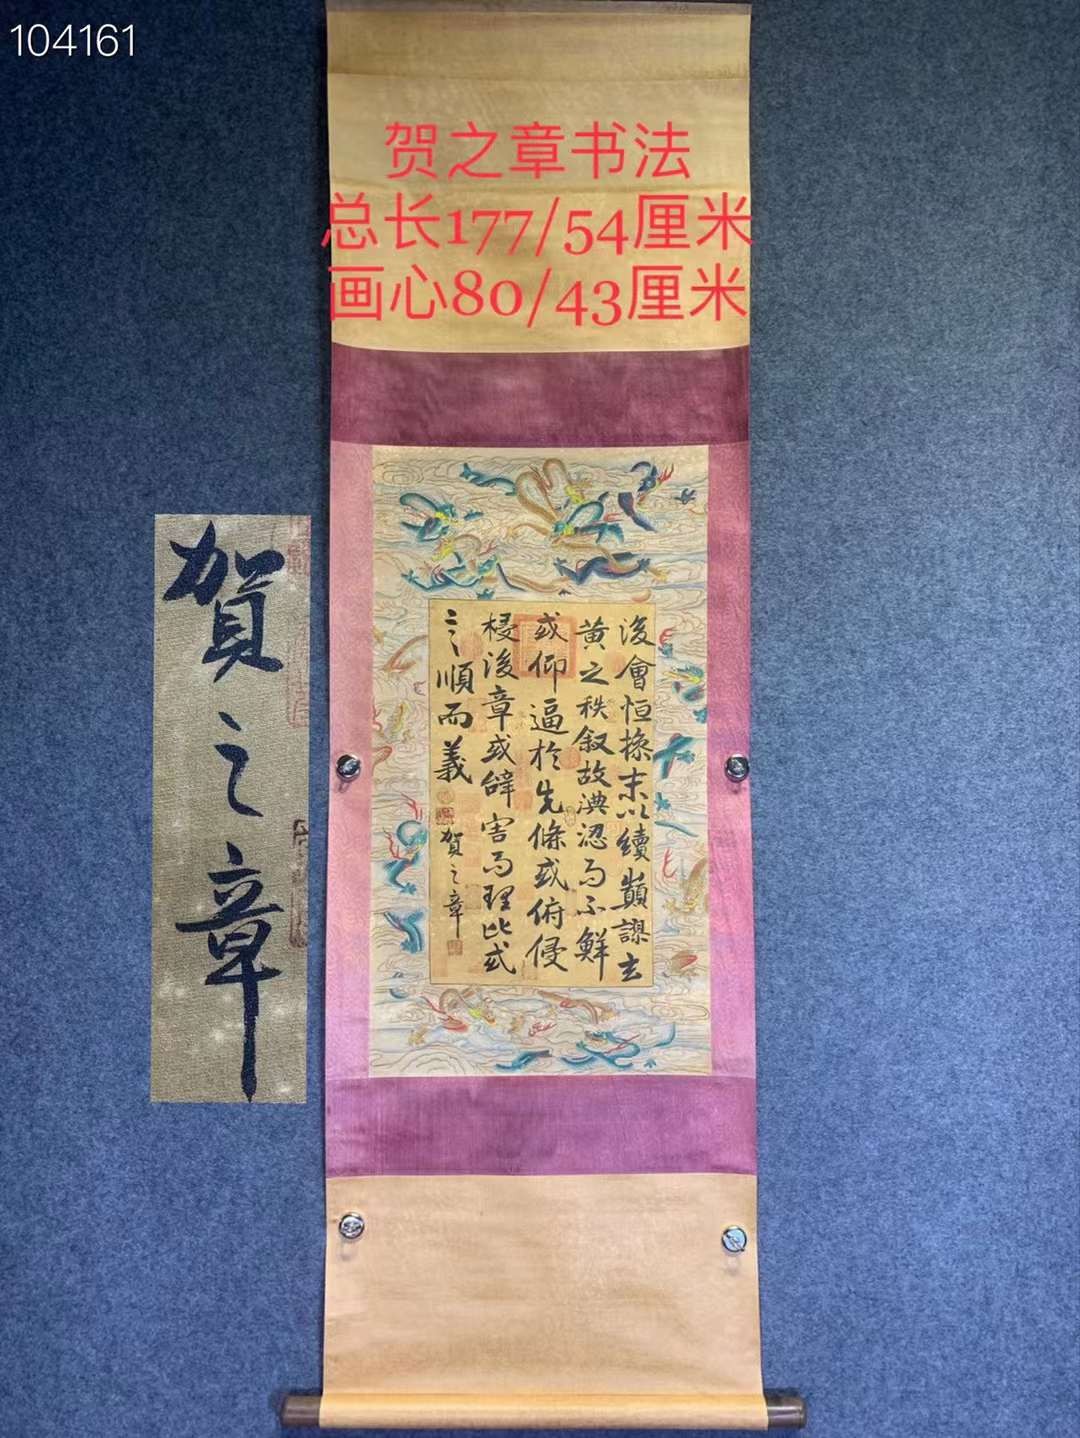 104161
贺之章书法
总长177/54厘米
画心80/43厘米
後會恒操末以續顛謬玄
黄之秩叙故淟涊而不鮮
或仰逼於先條或俯侵
後章或辭害而理比或
言順而義
賀之章
賀之章